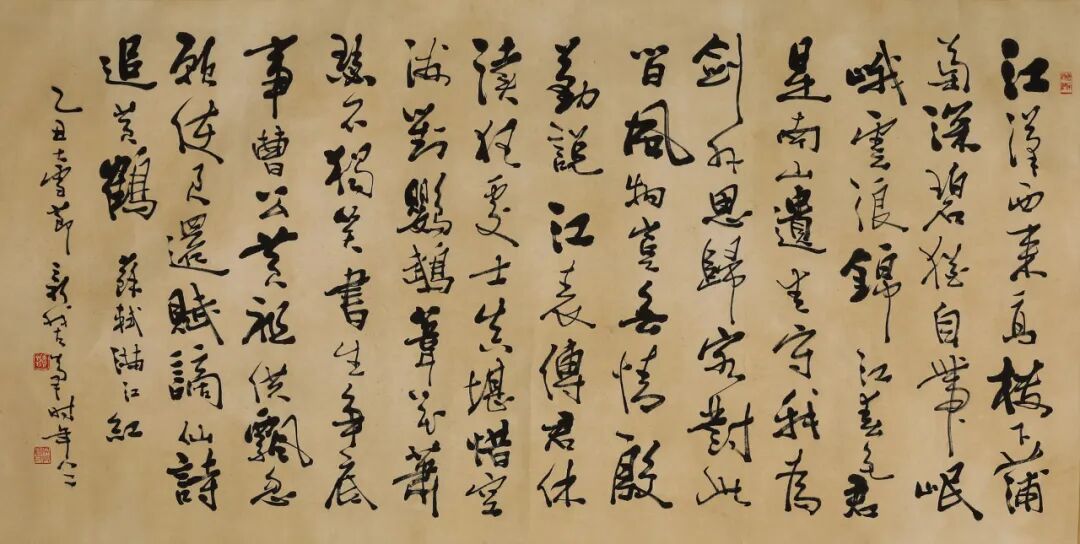 江漢西來高樓下蒲
萄深碧猶自帶岷
峨雲浪錦江春色君
是南山遺愛守我為
劍外思歸客對此
間風物豈無情殷
勤說江表傳君休
讀狂處士真堪惜空
洲對鸚鵡葦花蕭
瑟不獨笑書生爭底
事曹公黃祖俱飄忽
願使君還賦謫仙詩
追黃鶴 蘇軾滿江紅
乙丑大雪節 時年八二